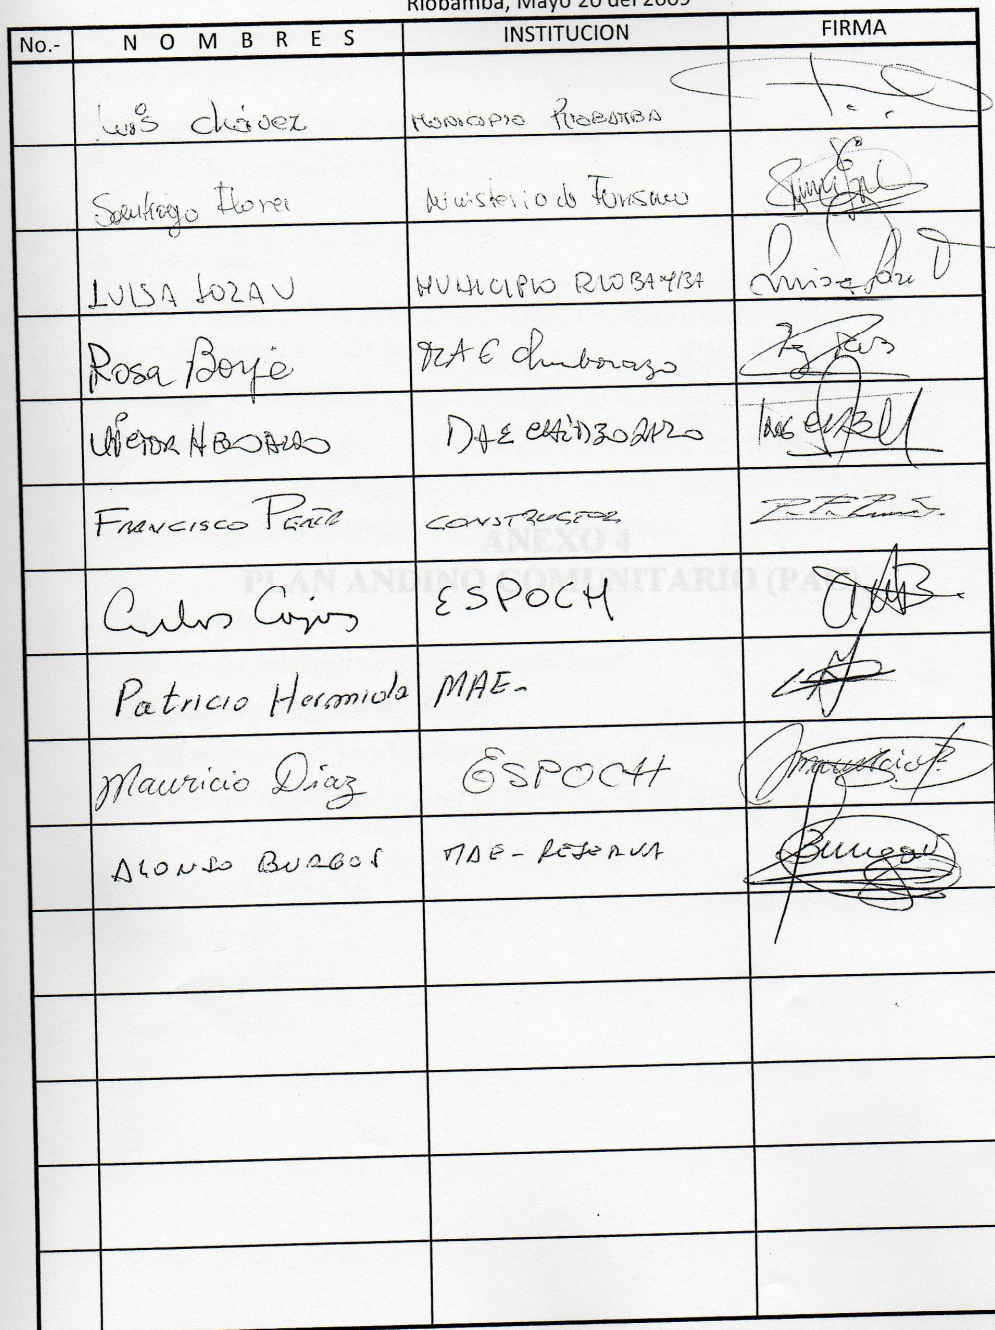 Riobamba, Mayo 20 del 2009
No.- N O M B R E S INSTITUCION FIRMA
Luis chávez MUNICIPIO RIOBAMBA
Santiago Flores Ministerio de Turismo
LUISA LOZANO MUNICIPIO RIOBAMBA
Rosa Borja MAE Chimborazo
VÍCTOR H MAE CHIMBORAZO
FRANCISCO PEÑA CONSTRUCTOR
Carlos Cajas ESPOCH
Patricio Hermida MAE-
Mauricio Díaz ESPOCH
ALONSO BURGOS MAE - RESERVA
ANEXO 4
PLAN ANDINO COMUNITARIO (PAC)